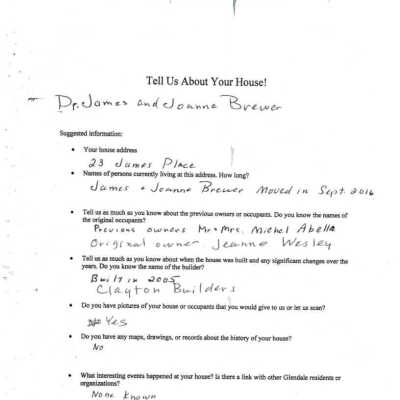 Tell Us About Your House!
Dr. James and Joanne Brewer
Suggested information:
• Your house address
23 James Place
• Names of persons currently living at this address. How long?
James + Joanne Brewer Moved in Sept. 2016
• Tell us as much as you know about the previous owners or occupants. Do you know the names of
the original occupants?
Previous owners Mr + Mrs. Michel Abella
Original owner Jeanne Wesley
• Tell us as much as you know about when the house was built and any significant changes over the
years. Do you know the name of the builder?
Built in 2005
Clayton Builders
• Do you have pictures of your house or occupants that you would give to us or let us scan?
Yes
• Do you have any maps, drawings, or records about the history of your house?
No
• What interesting events happened at your house? Is there a link with other Glendale residents or
organizations?
None Known